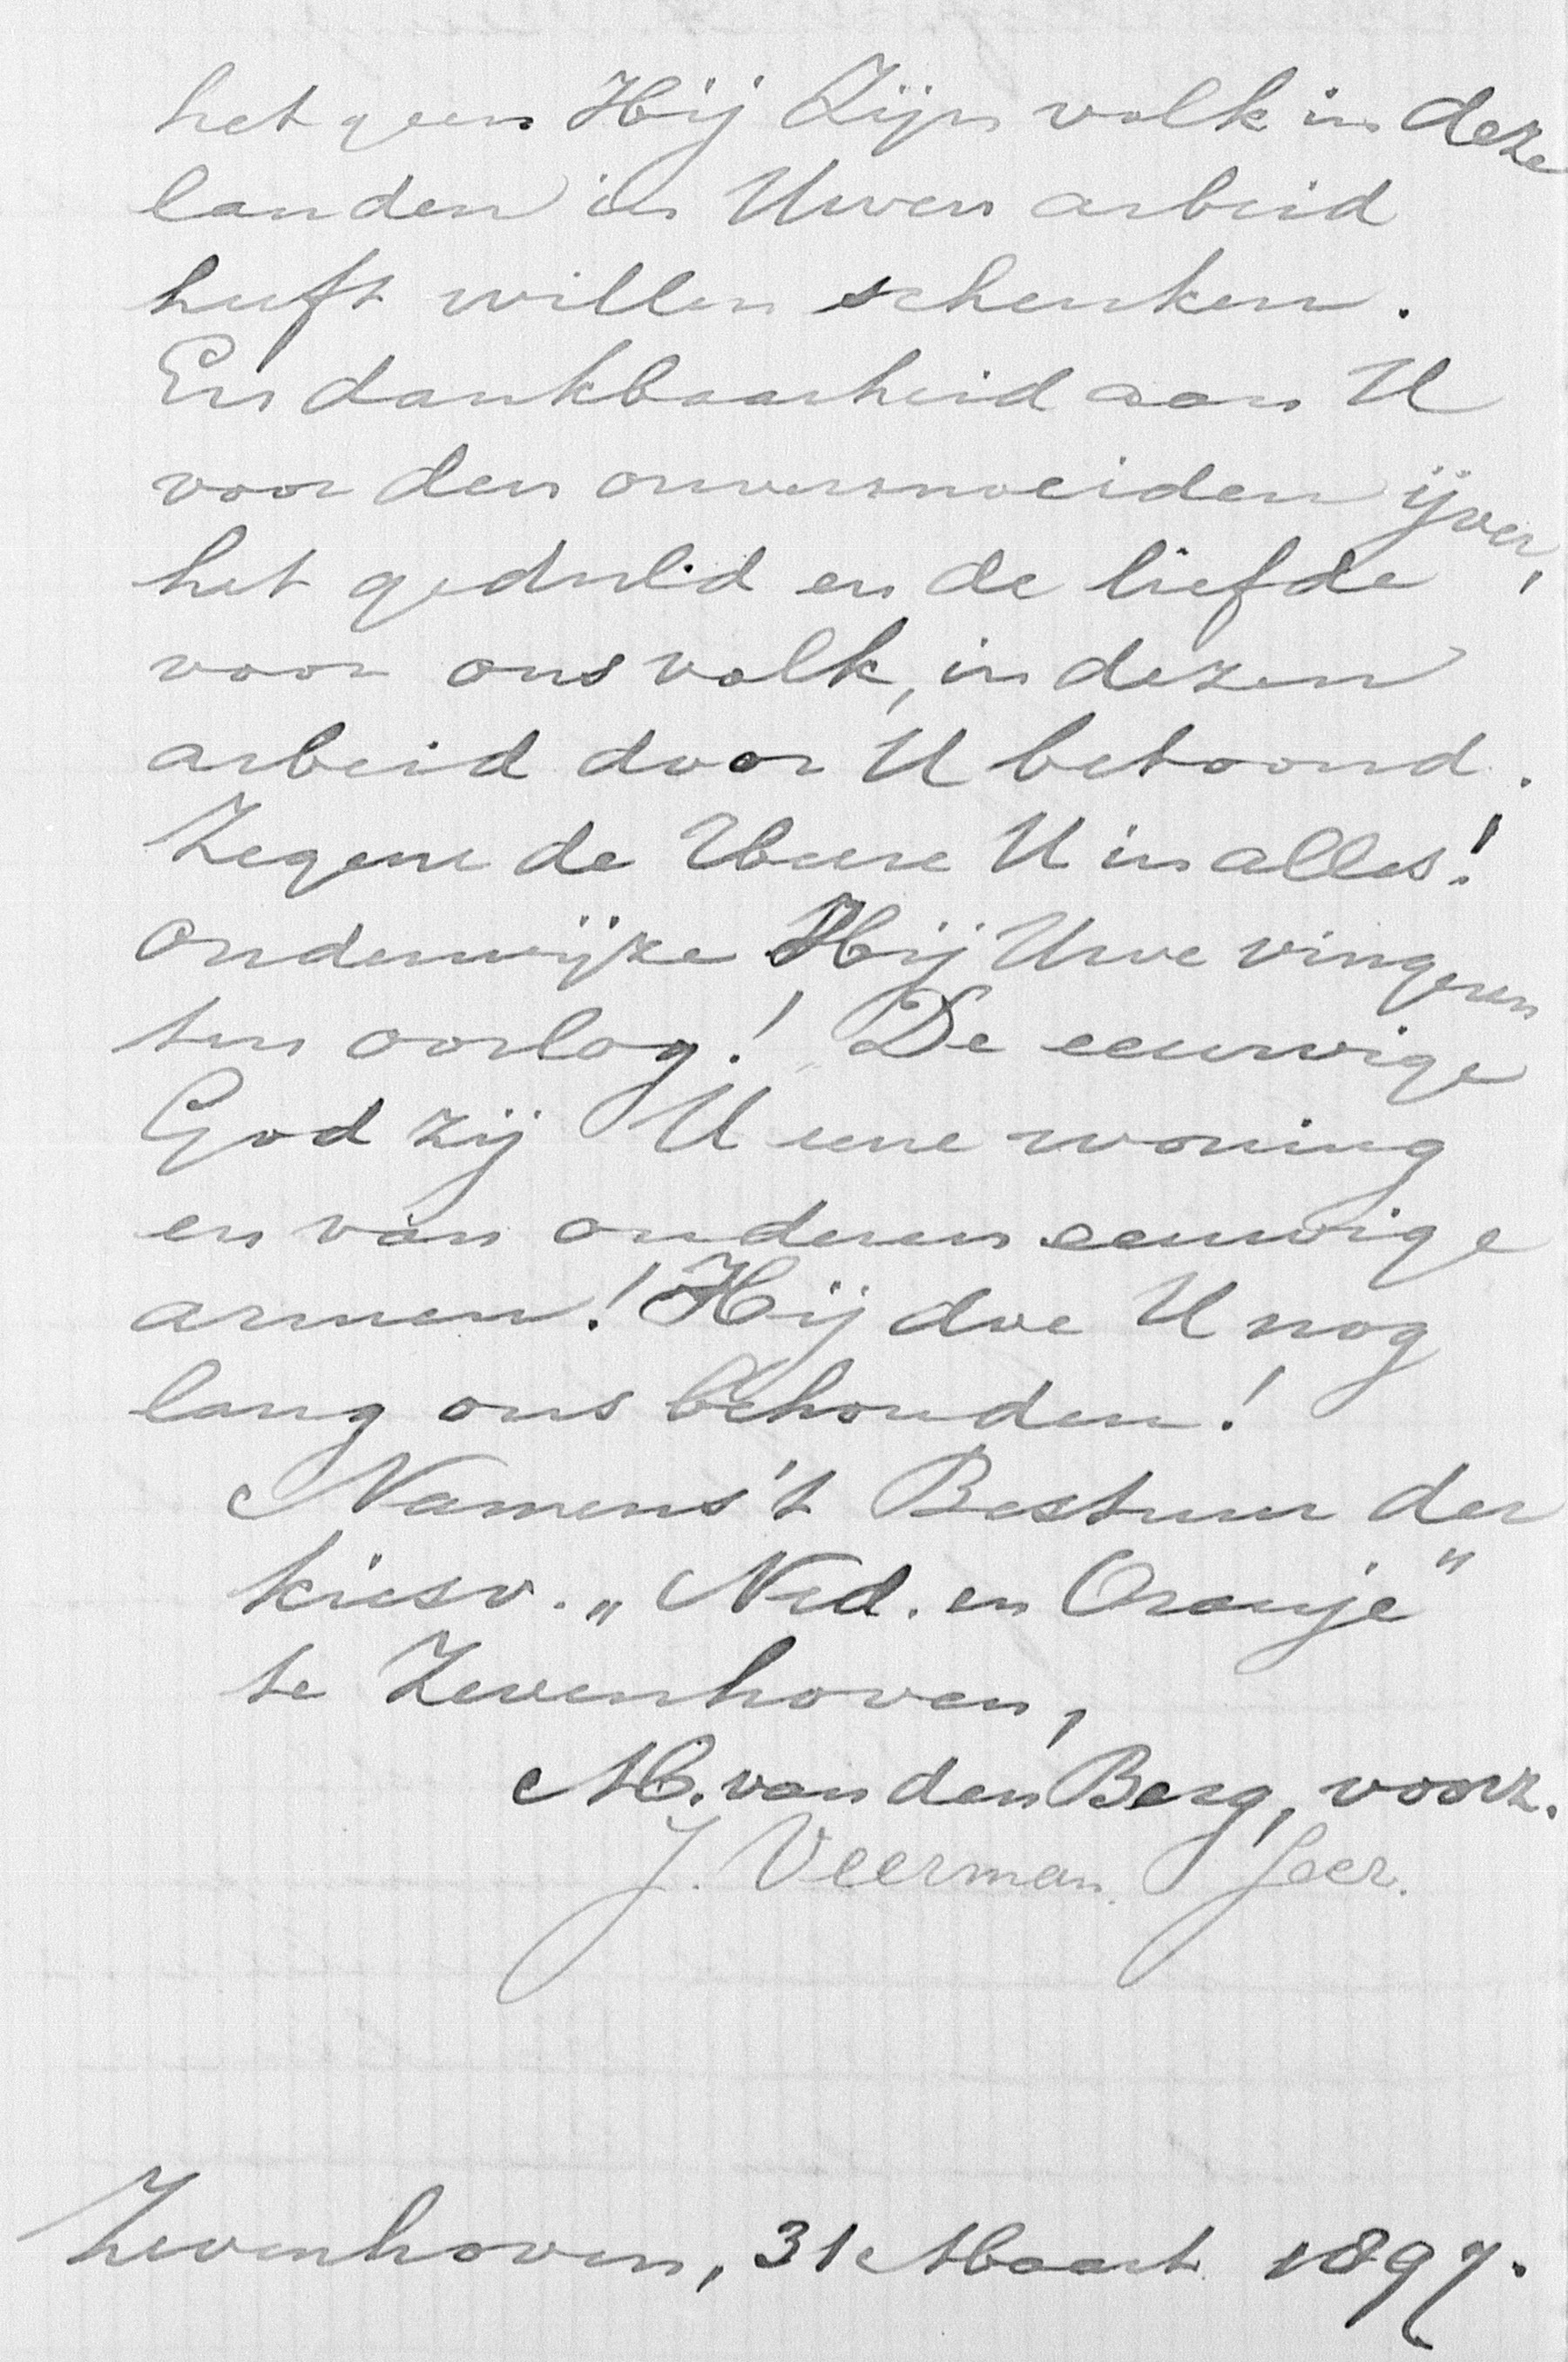 hetgeen Hij Zijn volk in deze
landen in Uwen arbeid
heeft willen schenken.
En dankbaarheid aan U
voor den onvermoeiden ijver,
het geduld en de liefde
voor ons volk, in dezen
arbeid door U betoond.
Zegene de Heere U in alles!
onderwijze Hij Uwe vingeren
ten oorlog! De eeuwige
God zij U eene woning
en van onderen eeuwige
armen! Hij doe U nog
lang ons behouden!
Namens 't Bestuur der
kiesv. „Ned. en Oranje"
te Zevenhoven,
M. van den Berg, voorz.
J. Veerman. Secr.
Zevenhoven, 31 Maart 1897.